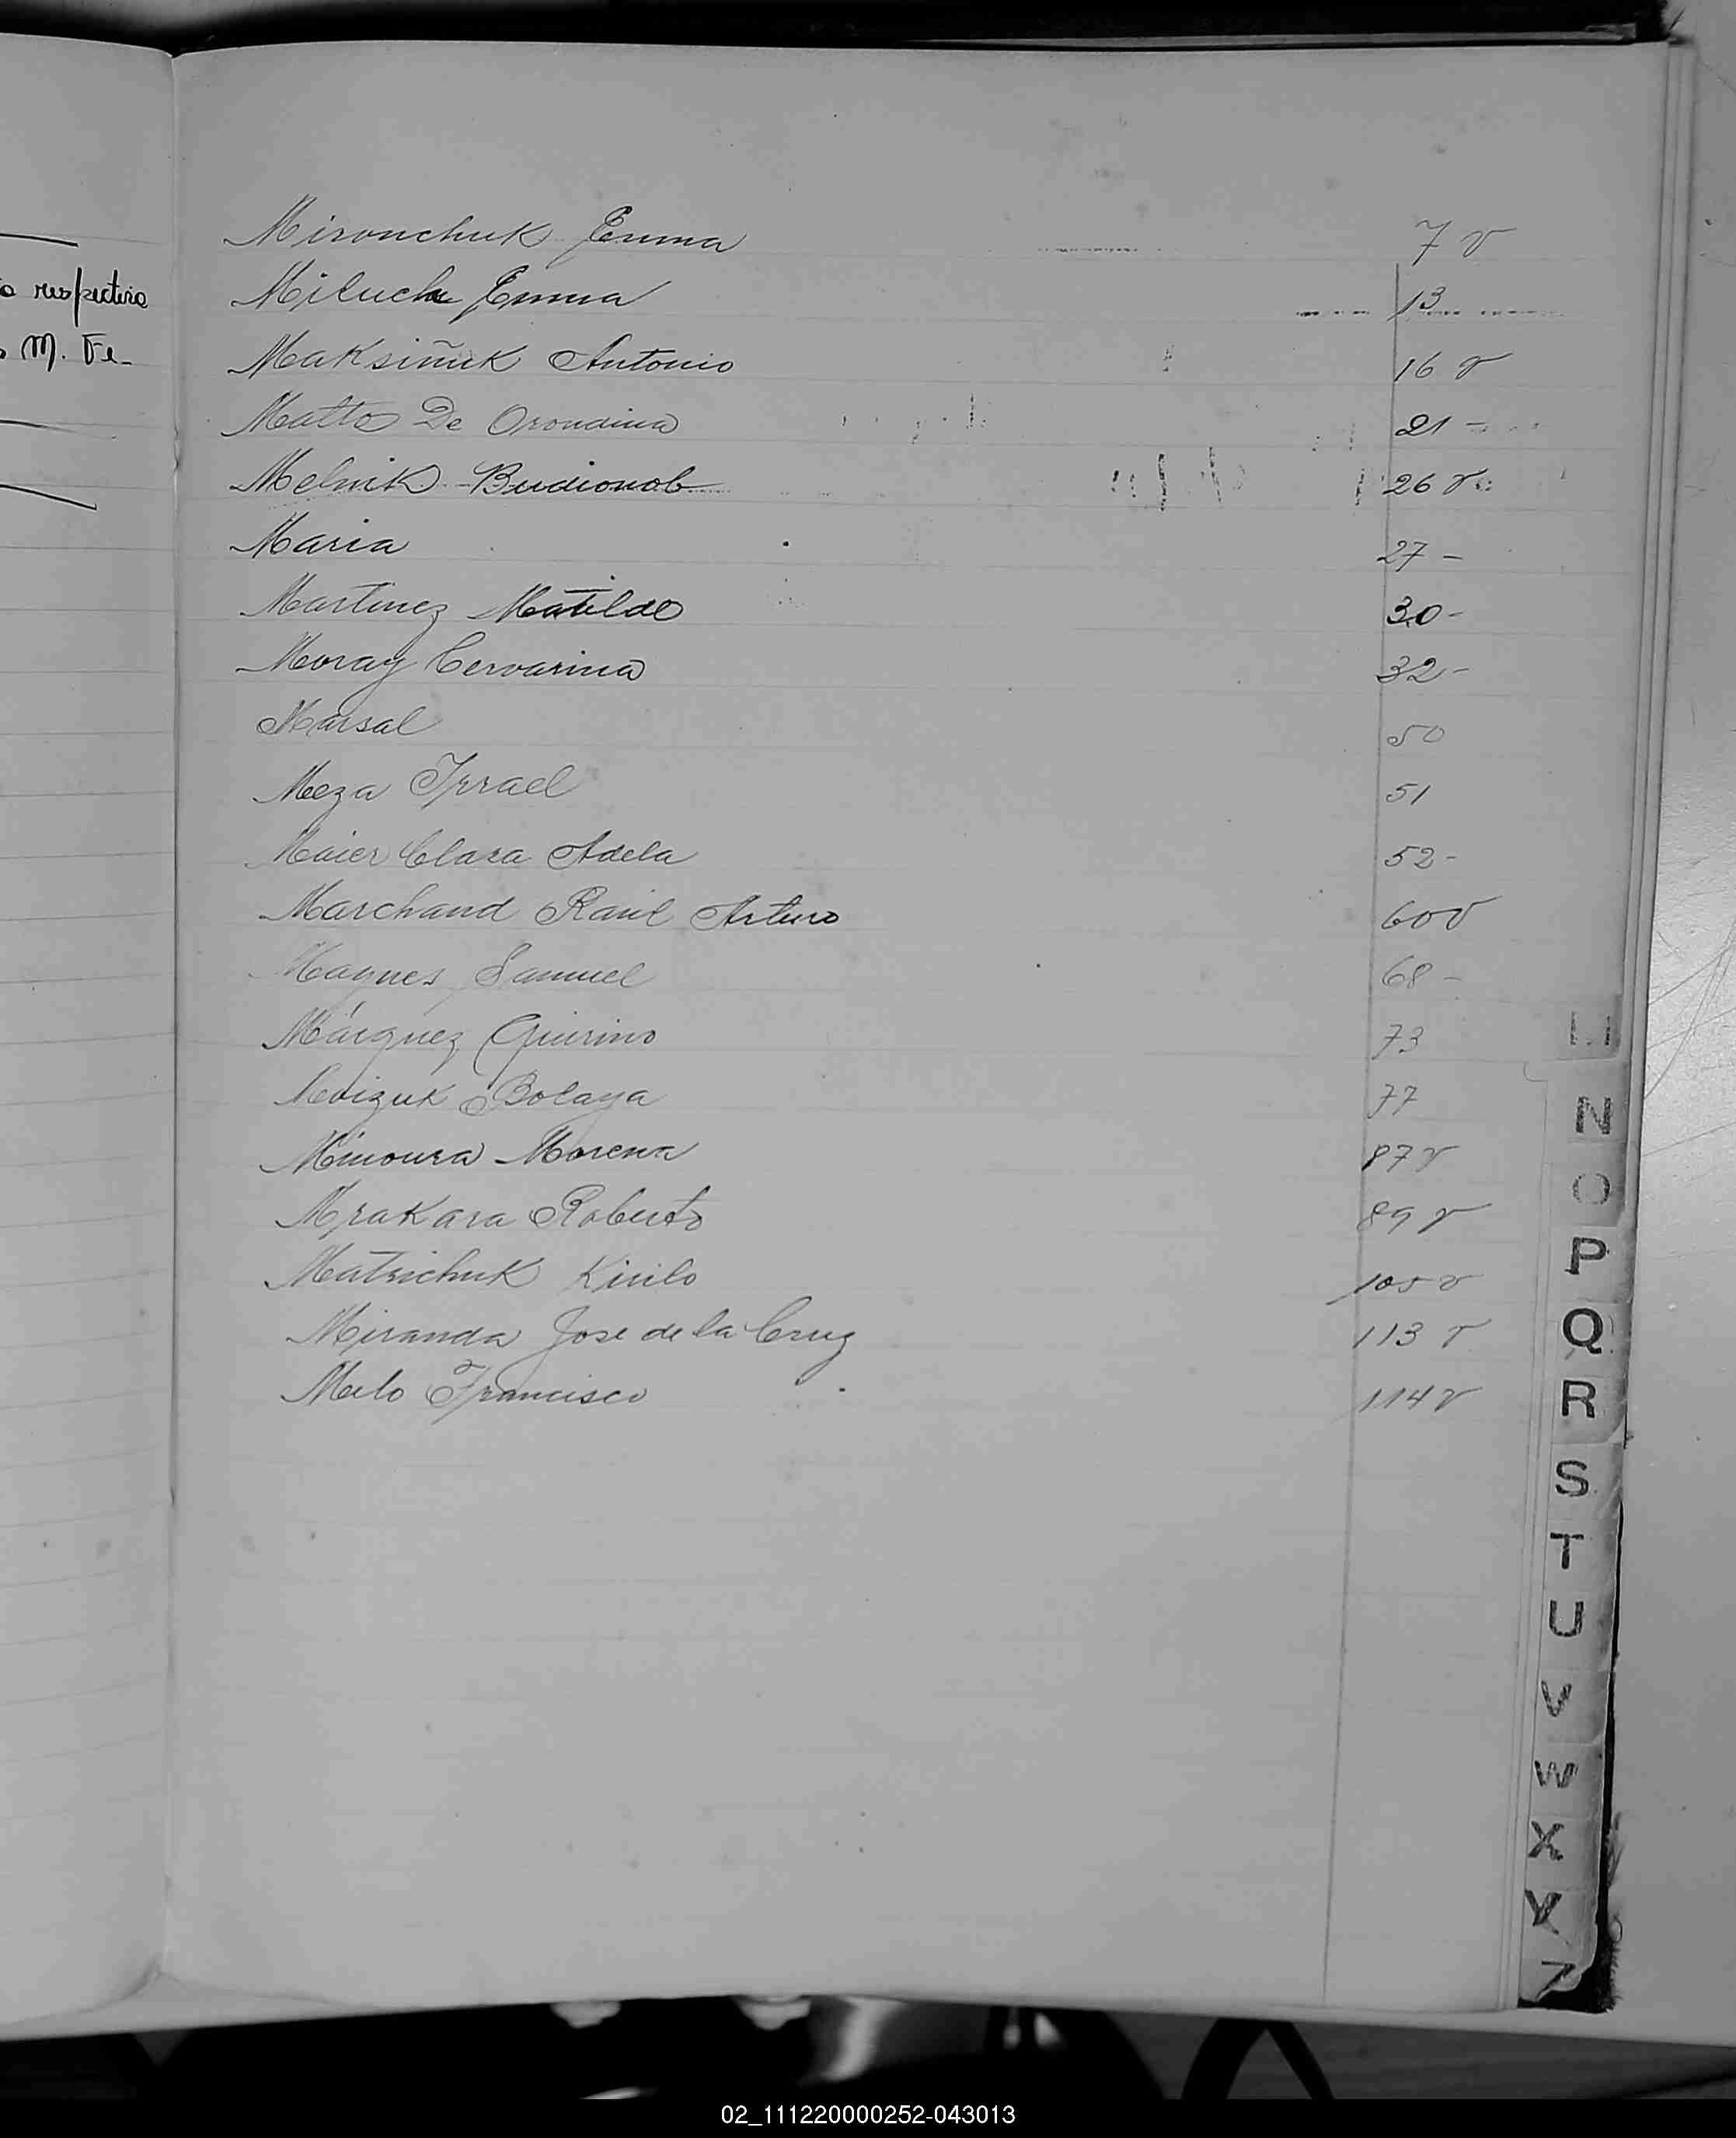 o respectivo
o M. Fe-
Mironchuk Emma 7 v
Miluch Emma 13
Maksiñuk Antonio 16 v
Matto De Orondina 21 -
Melnik Budionob 26 v
Maria 27 -
Martinez Matilde 30 -
Moray Cervarina 32 -
Marsal 50
Meza Isrrael 51
Maier Clara Adela 52 -
Marchand Raúl Arturo 60 v
Magnes Samuel 68 -
Márquez Quirino 73
Moizuk Bolaya 77
Minoura Morena 87 v
Mrakara Roberto 89 v
Matrichuk Kirilo 105 v
Miranda Jose de la Cruz 113 v
Melo Francisco 114 v
N
O
P
Q
R
S
T
U
V
W
X
Y
Z
02_111220000252-043013